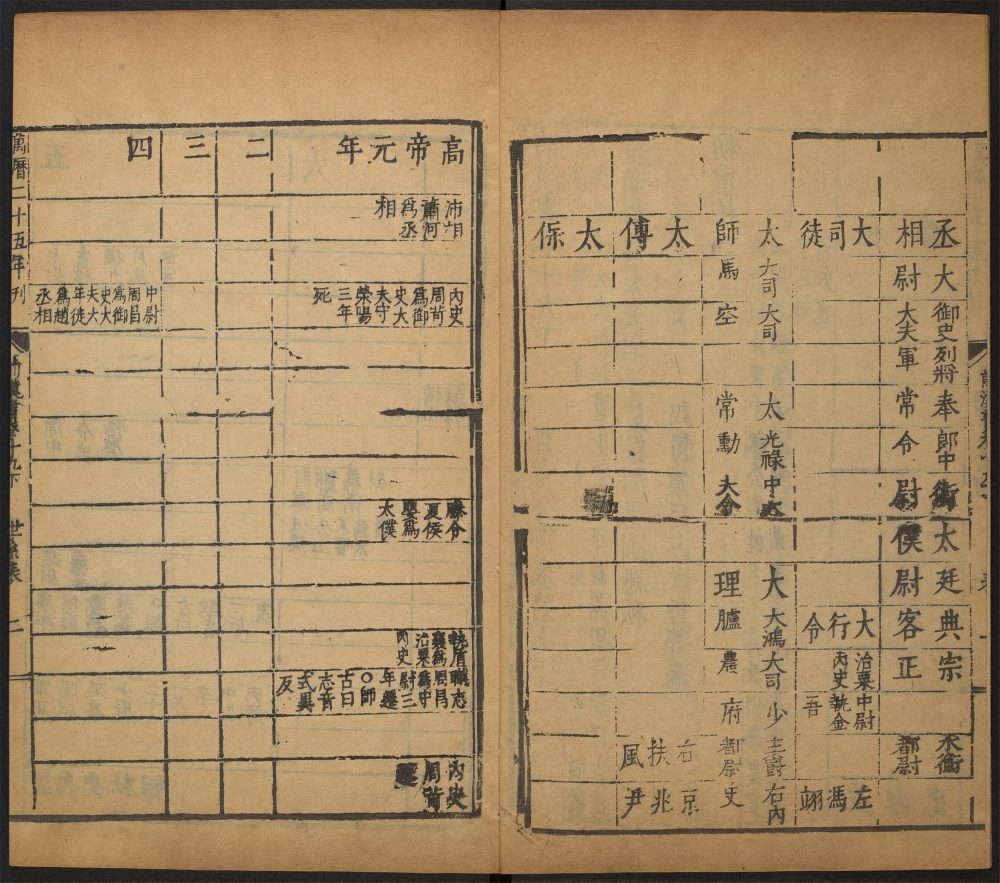 丞相
大司徒
太師
太傅
太保
大尉
大司馬
御史大夫
大司空
列將軍
奉常
太常
郎中令
光祿勳
衛尉
中大夫令
太僕
廷尉
大理
典客
大行令
大鴻臚
宗正
治粟內史
大司農
中尉執金吾
少府
水衡都尉
主爵都尉
右扶風
左馮翊
右內史
京兆尹
高帝元年
二
三
四
沛相
蕭何
爲丞
相
內史
周苛
爲御
史大
夫守
滎陽
三年
死
中尉
周昌
爲御
史大
夫六
年徙
爲趙
丞相
滕令
夏侯
嬰爲
太僕
執盾
襄爲
治粟
內史
職志
周昌
爲中
尉三
年遷
○師
古曰
志音
式異
反
內史
周苛
遷
萬曆二十五年刊
前漢書卷十九下
世系表
二